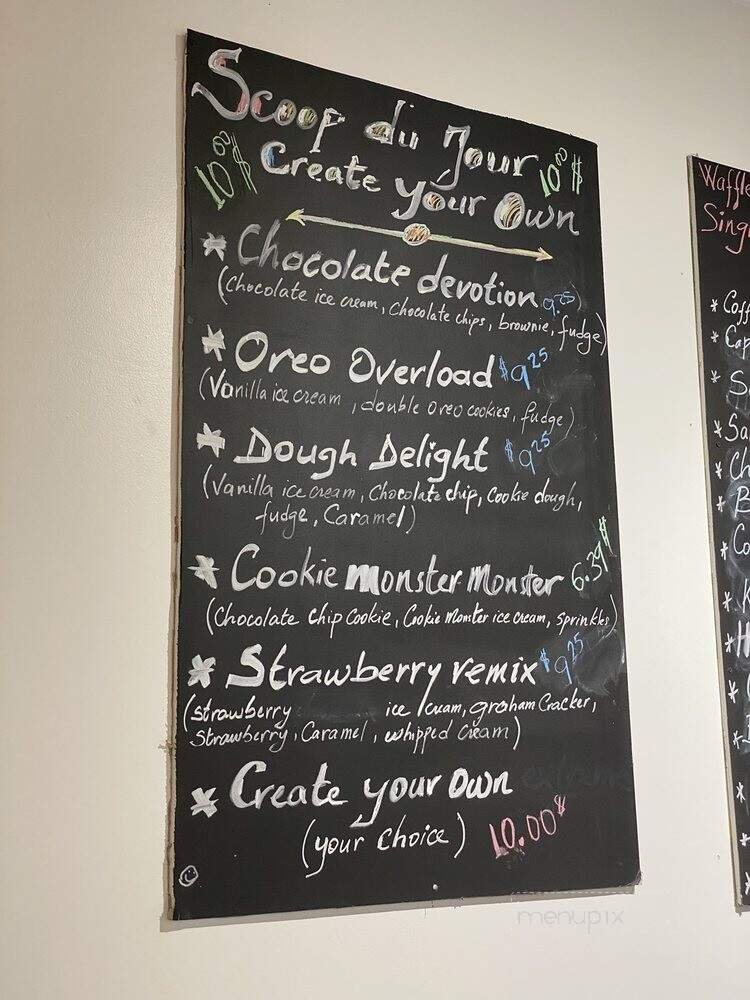 Scoop du Jour
10.00$ Create your Own 10.00$
* Chocolate devotion 9.25
(Chocolate ice cream, Chocolate chips, brownie, fudge)
* Oreo Overload $9.25
(Vanilla ice cream, double oreo cookies, fudge)
* Dough Delight $9.25
(Vanilla ice cream, Chocolate chip, Cookie dough,
fudge, Caramel)
* Cookie Monster Monster 6.39$
(Chocolate chip Cookie, Cookie Monster ice cream, sprinkles)
* Strawberry remix $9.25
(strawberry ice cream, graham Cracker,
Strawberry, Caramel, whipped cream)
* Create your Own
(your Choice) 10.00$
menupix